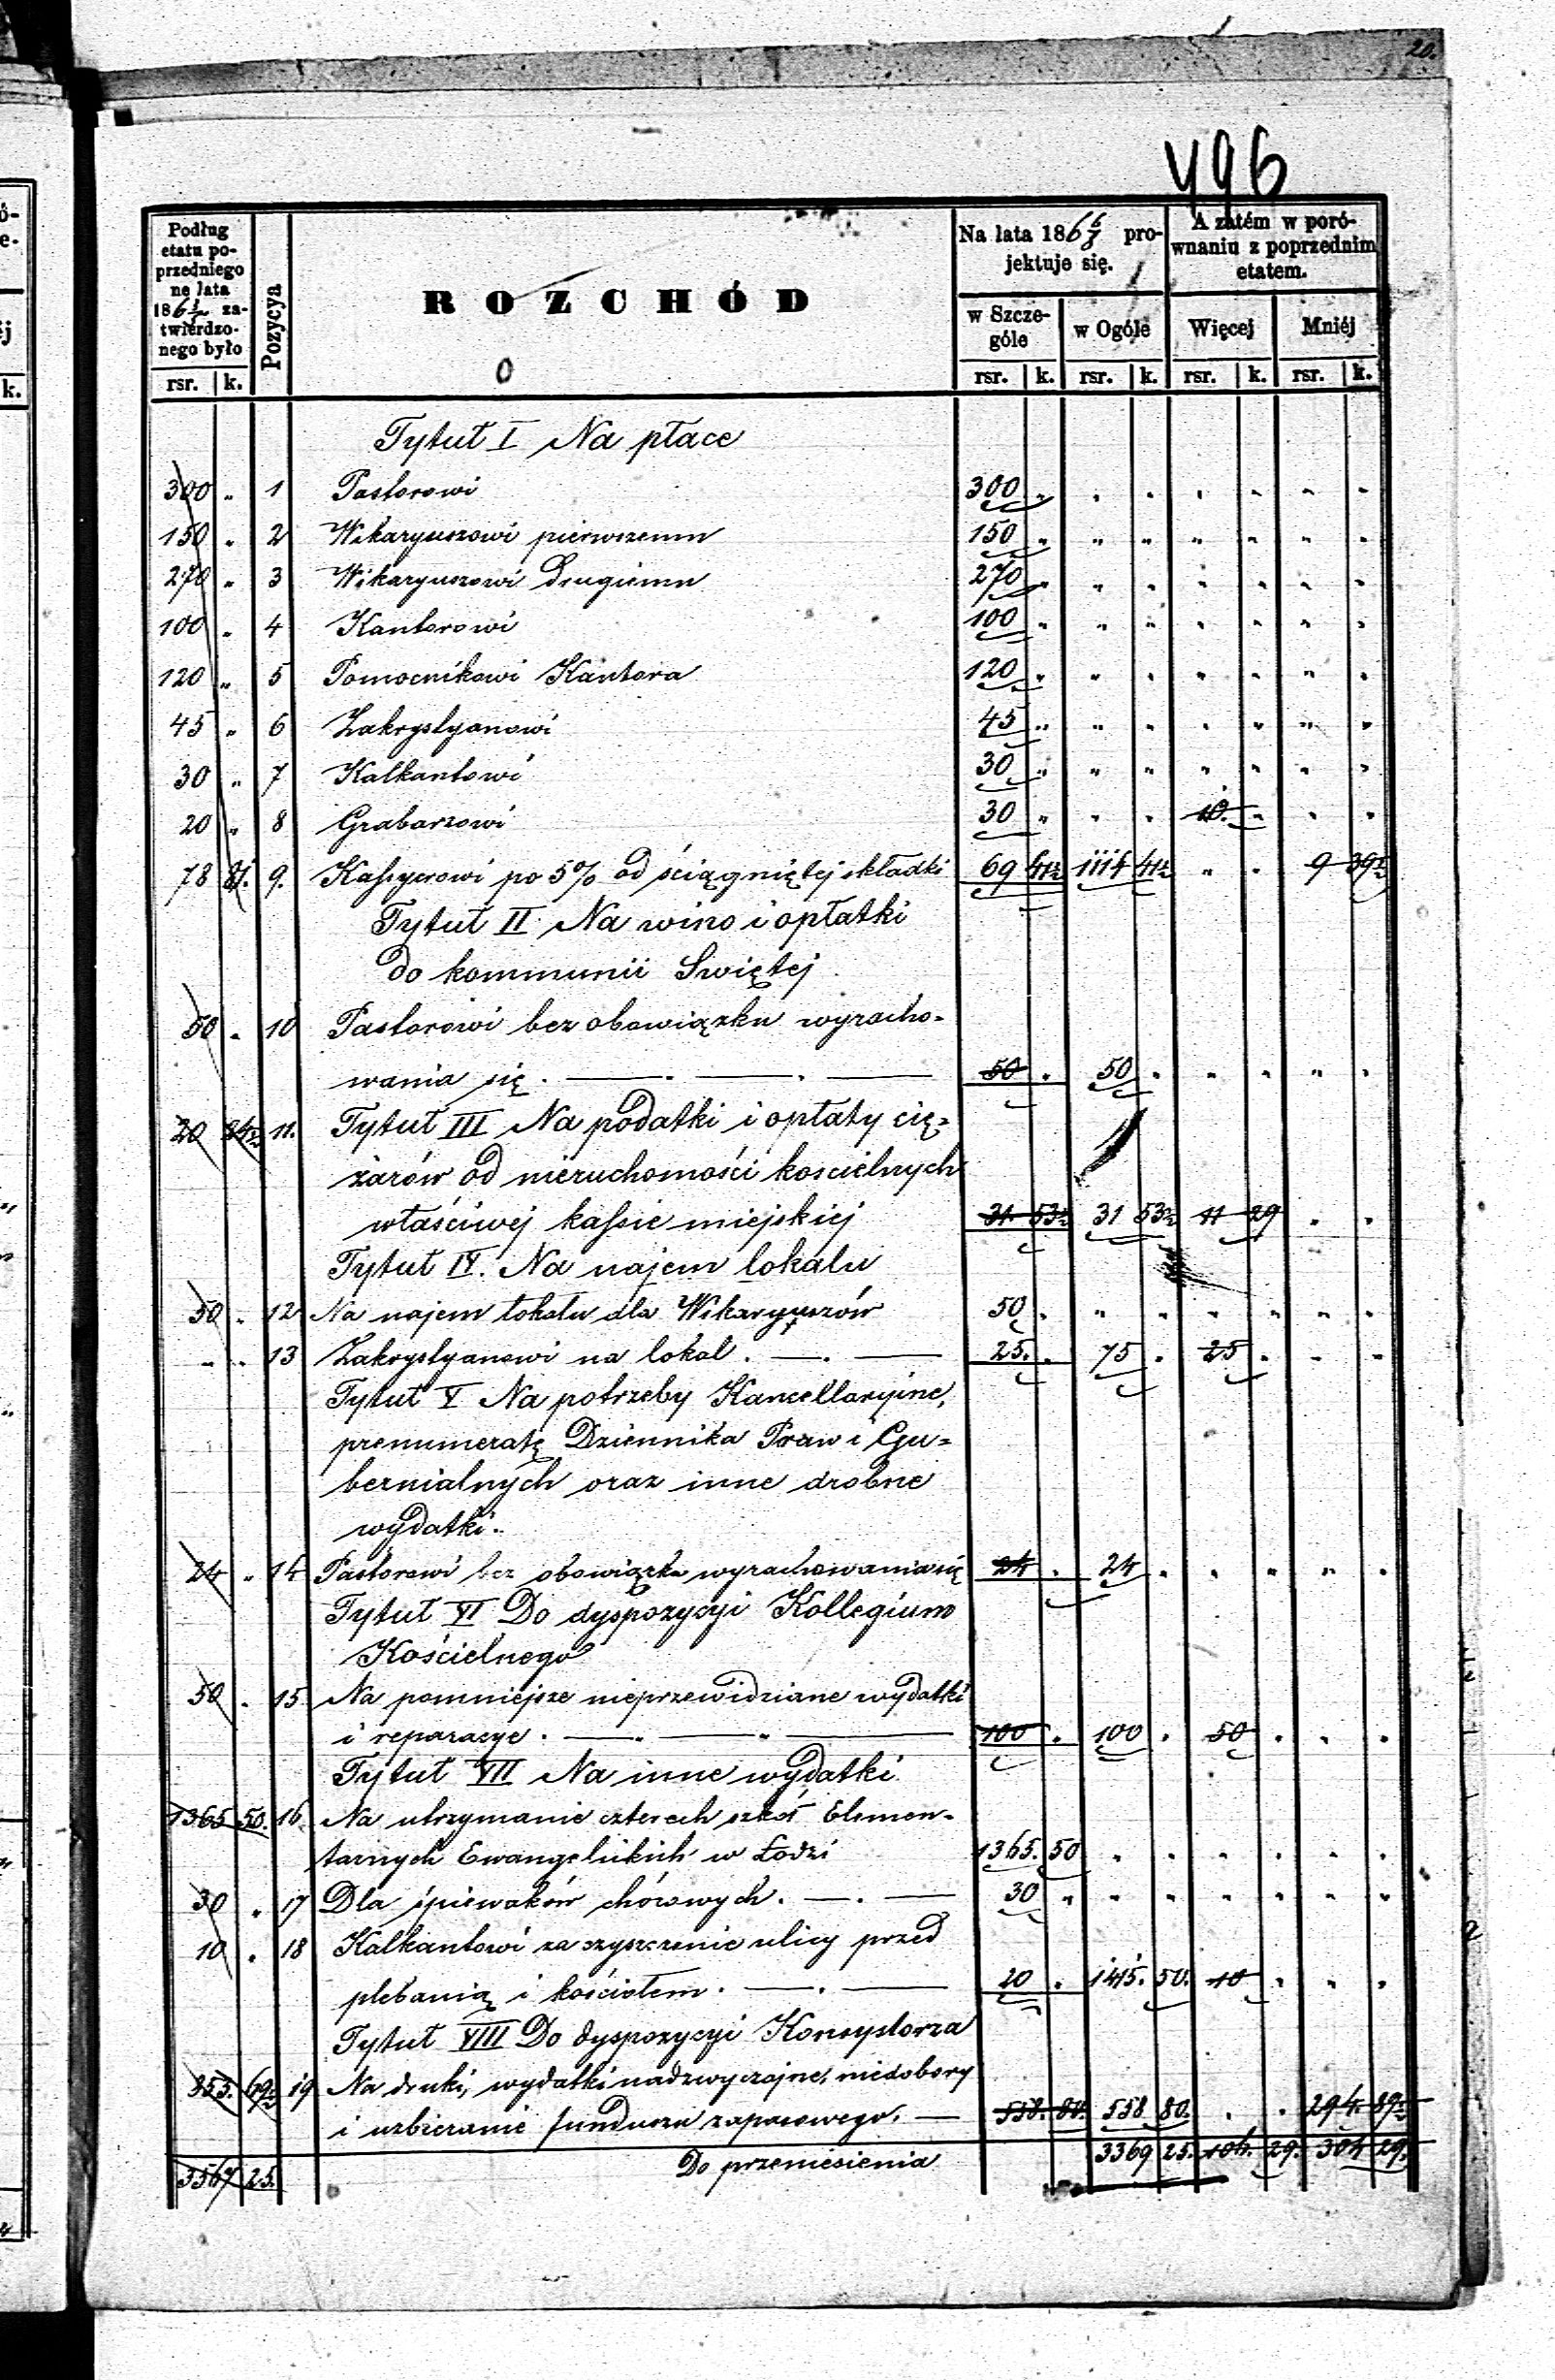 20.
496
Podług etatu po- przedniego na lata 186 3/5 za- twierdzo- nego było
Pozycya
ROZCHÓD
Na lata 186 6/8 pro- jektuje się.
A zatém w poró- wnaniu z poprzednim etatem.
w Szcze- góle
w Ogóle
Więcej
Mniéj
rsr. k. rsr. k. rsr. k. rsr. k. rsr. k.
Tytuł I Na płace
300 " 1 Pastorowi 300 " " " " " " "
150 " 2 Wikaryuszowi pierwszemu 150 " " " " " " "
270 " 3 Wikaryuszowi Drugiemu 270 " " " " " " "
100 " 4 Kantorowi 100 " " " " " " "
120 " 5 Pomocnikowi Kantora 120 " " " " " " "
45 " 6 Zakrystyanowi 45 " " " " " " "
30 " 7 Kalkantowi 30 " " " " " " "
20 " 8 Grabarzowi 30 " " " 10. " " "
78 81. 9. Kassyerowi po 5% od ściągniętej składki 69 41½ 1114 41½ " " 9 39½
Tytuł II Na wino i opłatki
do kommunii Swiętej
50 " 10 Pastorowi bez obowiązku wyracho-
wania się. 50 . 50 " " " " "
20 24½ 11. Tytuł III Na podatki i opłaty cię-
żarów od nieruchomości koscielnych
właściwej kassie miejskiej 31 53½ 31 53½ 11 29 " "
Tytuł IV. Na najem lokalu
50 " 12 Na najem lokalu dla Wikaryuszów 50 " " " " " " "
" " 13 Zakrystyanowi na lokal. 25. . 75 . 25 . " "
Tytuł V Na potrzeby Kancellaryine,
prenumeratę Dziennika Praw i Gu-
bernialnych oraz inne drobne
wydatki..
24 " 14 Pastorowi bez obowiązku wyrachowania się 24 . 24 . " " " "
Tytuł VI Do dyspozycyi Kollegium
Kościelnego
50 " 15. Na pomniejsze nieprzewidziane wydatki
i reparacye. 100 . 100 . 50 . . .
Tytuł VII Na inne wydatki
1365 50. 16. Na utrzymanie czterech szkół Elemen-
tarnych Ewangelickich w Łodzi 1365. 50 " " " " " "
30 " 17 Dla śpiewaków chórowych. 30 " " " " " " "
10 " 18 Kalkantowi za czyszczenie ulicy przed
plebanią i kościołem. 20 . 1415. 50. 10 " " "
Tytuł VIII Do dyspozycyi Konsystorza
853. 69½ 19 Na druki, wydatki nadzwyczajne, niedobory
i uzbieranie funduszu zapasowego. 558. 80. 558 80. . . 294 89½
3567 25. Do przeniesienia 3369 25. 106. 29. 304 29.